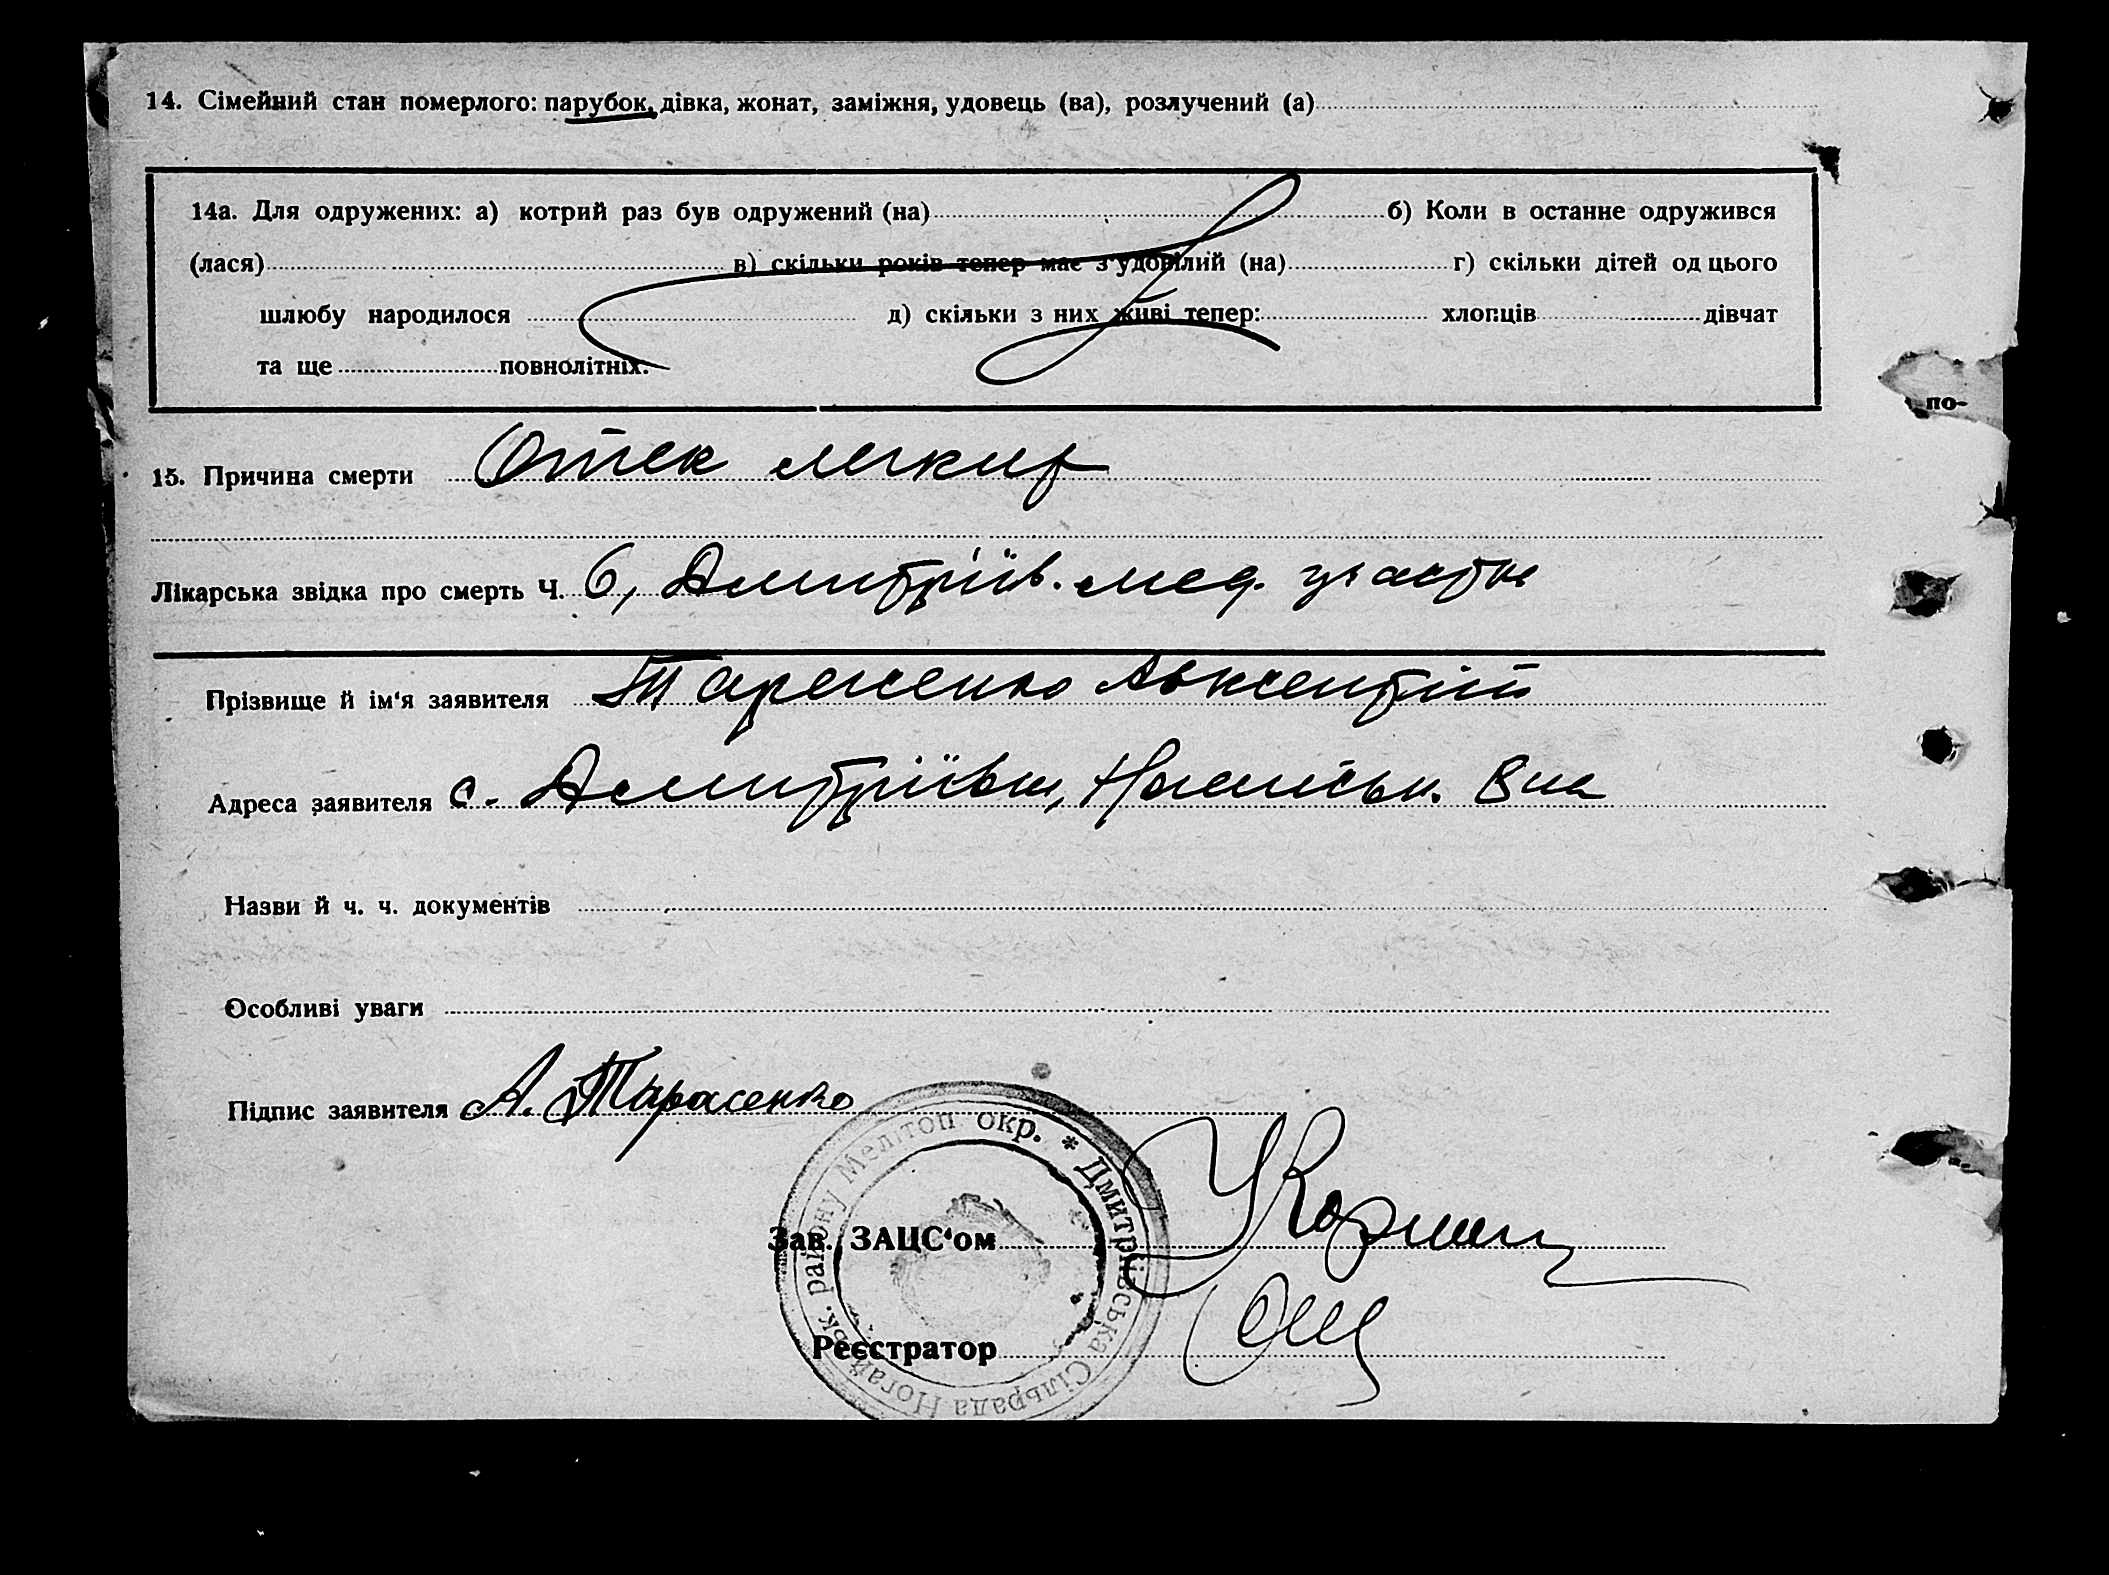 14. Сімейний стан померлого: парубок, дівка, жонат, заміжня, удовець (ва), розлучений (а)
14а. Для одружених: а) котрий раз був одружений (на) б) Коли в останнє одружився
(лася) в) скільки років тепер має з'удовілий (на) г) скільки дітей од цього
шлюбу народилося д) скільки з них живі тепер: хлопців дівчат
та ще повнолітніх.
по-
15. Причина смерти Отек легких
Лікарська звідка про смерть Ч. 6, Дмитріїв. мед. участк
Прізвище й ім'я заявителя Тарасенко Авксентій
Адреса заявителя с. Дмитріївка, Ногайськ.
Назви й ч. ч. документів
Особливі уваги
Підпис заявителя А. Тарасенко
Дмитріївська Сільрада Ногайськ. району Мелітоп окр. *
Зав. ЗАЦС'ом
Реєстратор